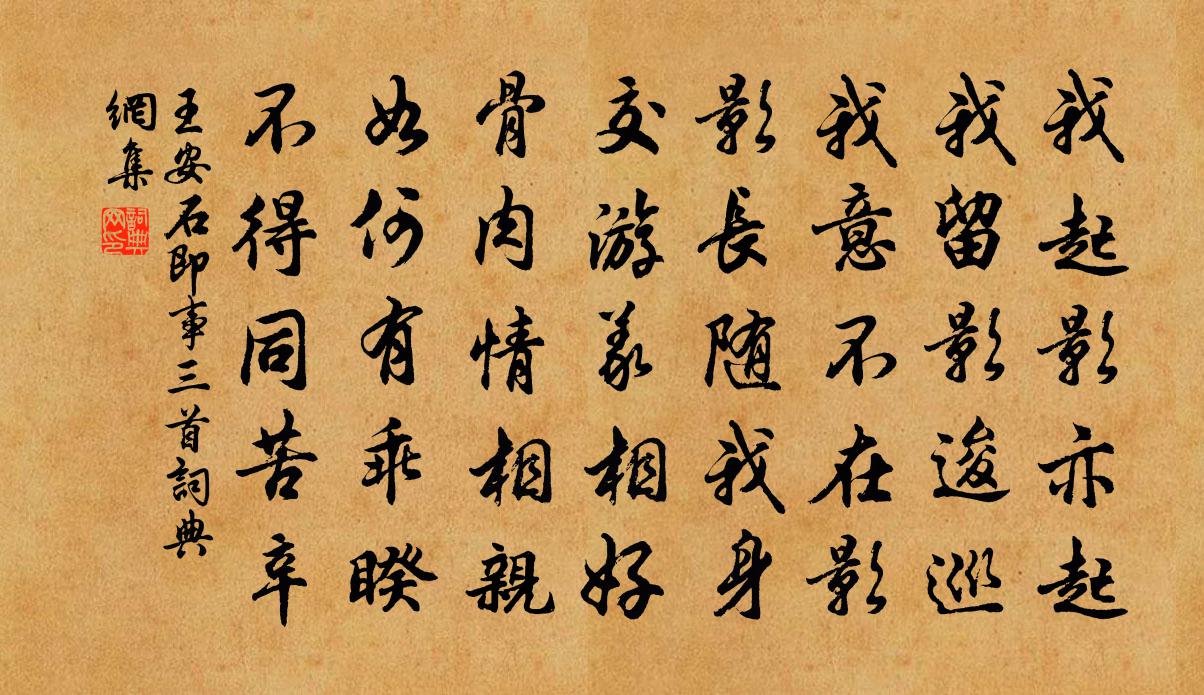 我起影亦起
我留影逡巡
我意不在影
影長随我身
交游義相好
骨肉情相親
如何有乖睽
不得同苦辛
王安石即事三首詞典
網集
詞典網印